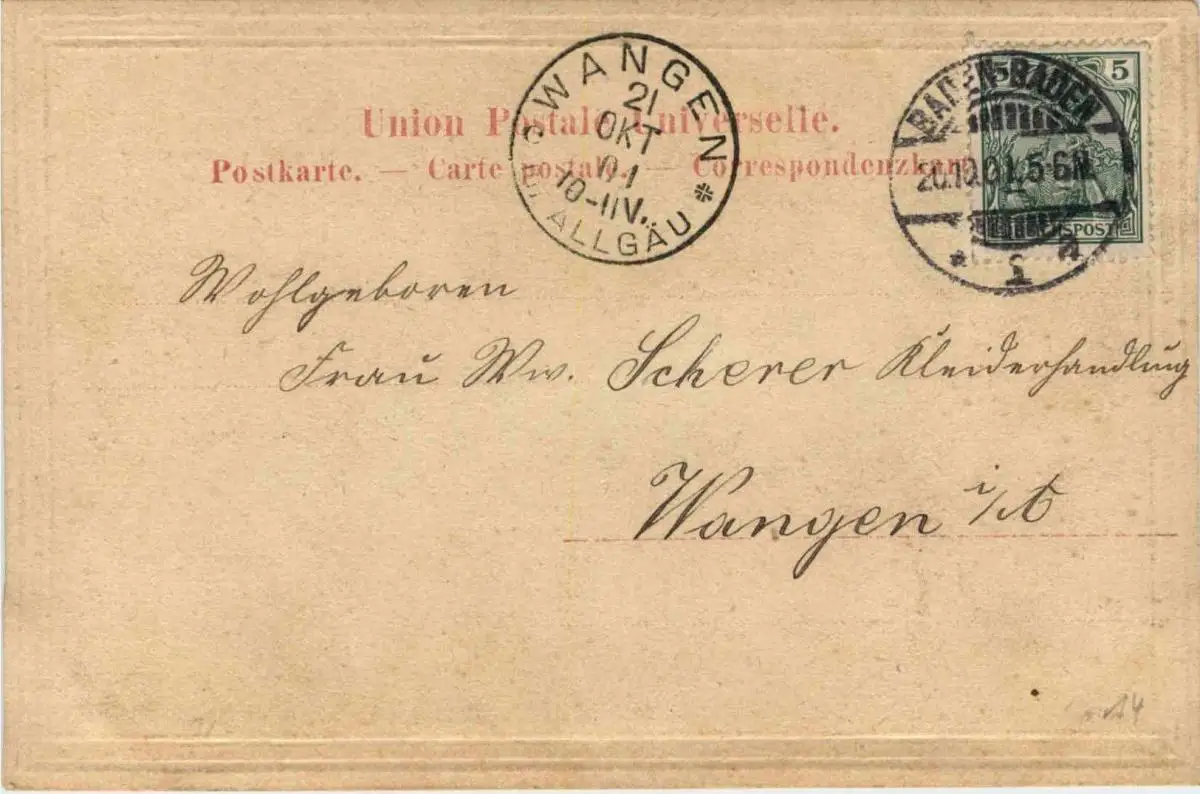 Union Postale Universelle.
Postkarte. — Carte postale. — Correspondenzkarte
WANGEN
21
OKT
01
10-11V.
ALLGÄU
BADEN-BADEN
20.10.01.5-6N.
* 1 a
5 5
REICHSPOST
Wohlgeboren
Frau Ww. Scherer Kleiderhandlung
Wangen i/A